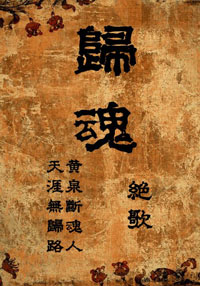 歸魂
絕歌
黄泉斷魂人
天涯無歸路